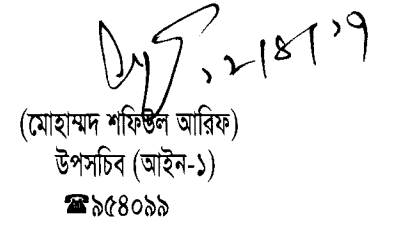 ১২/৪/১৭
(মোহাম্মদ শফিউল আরিফ)
উপসচিব (আইন-১)
☎৯৫৪০৯৯